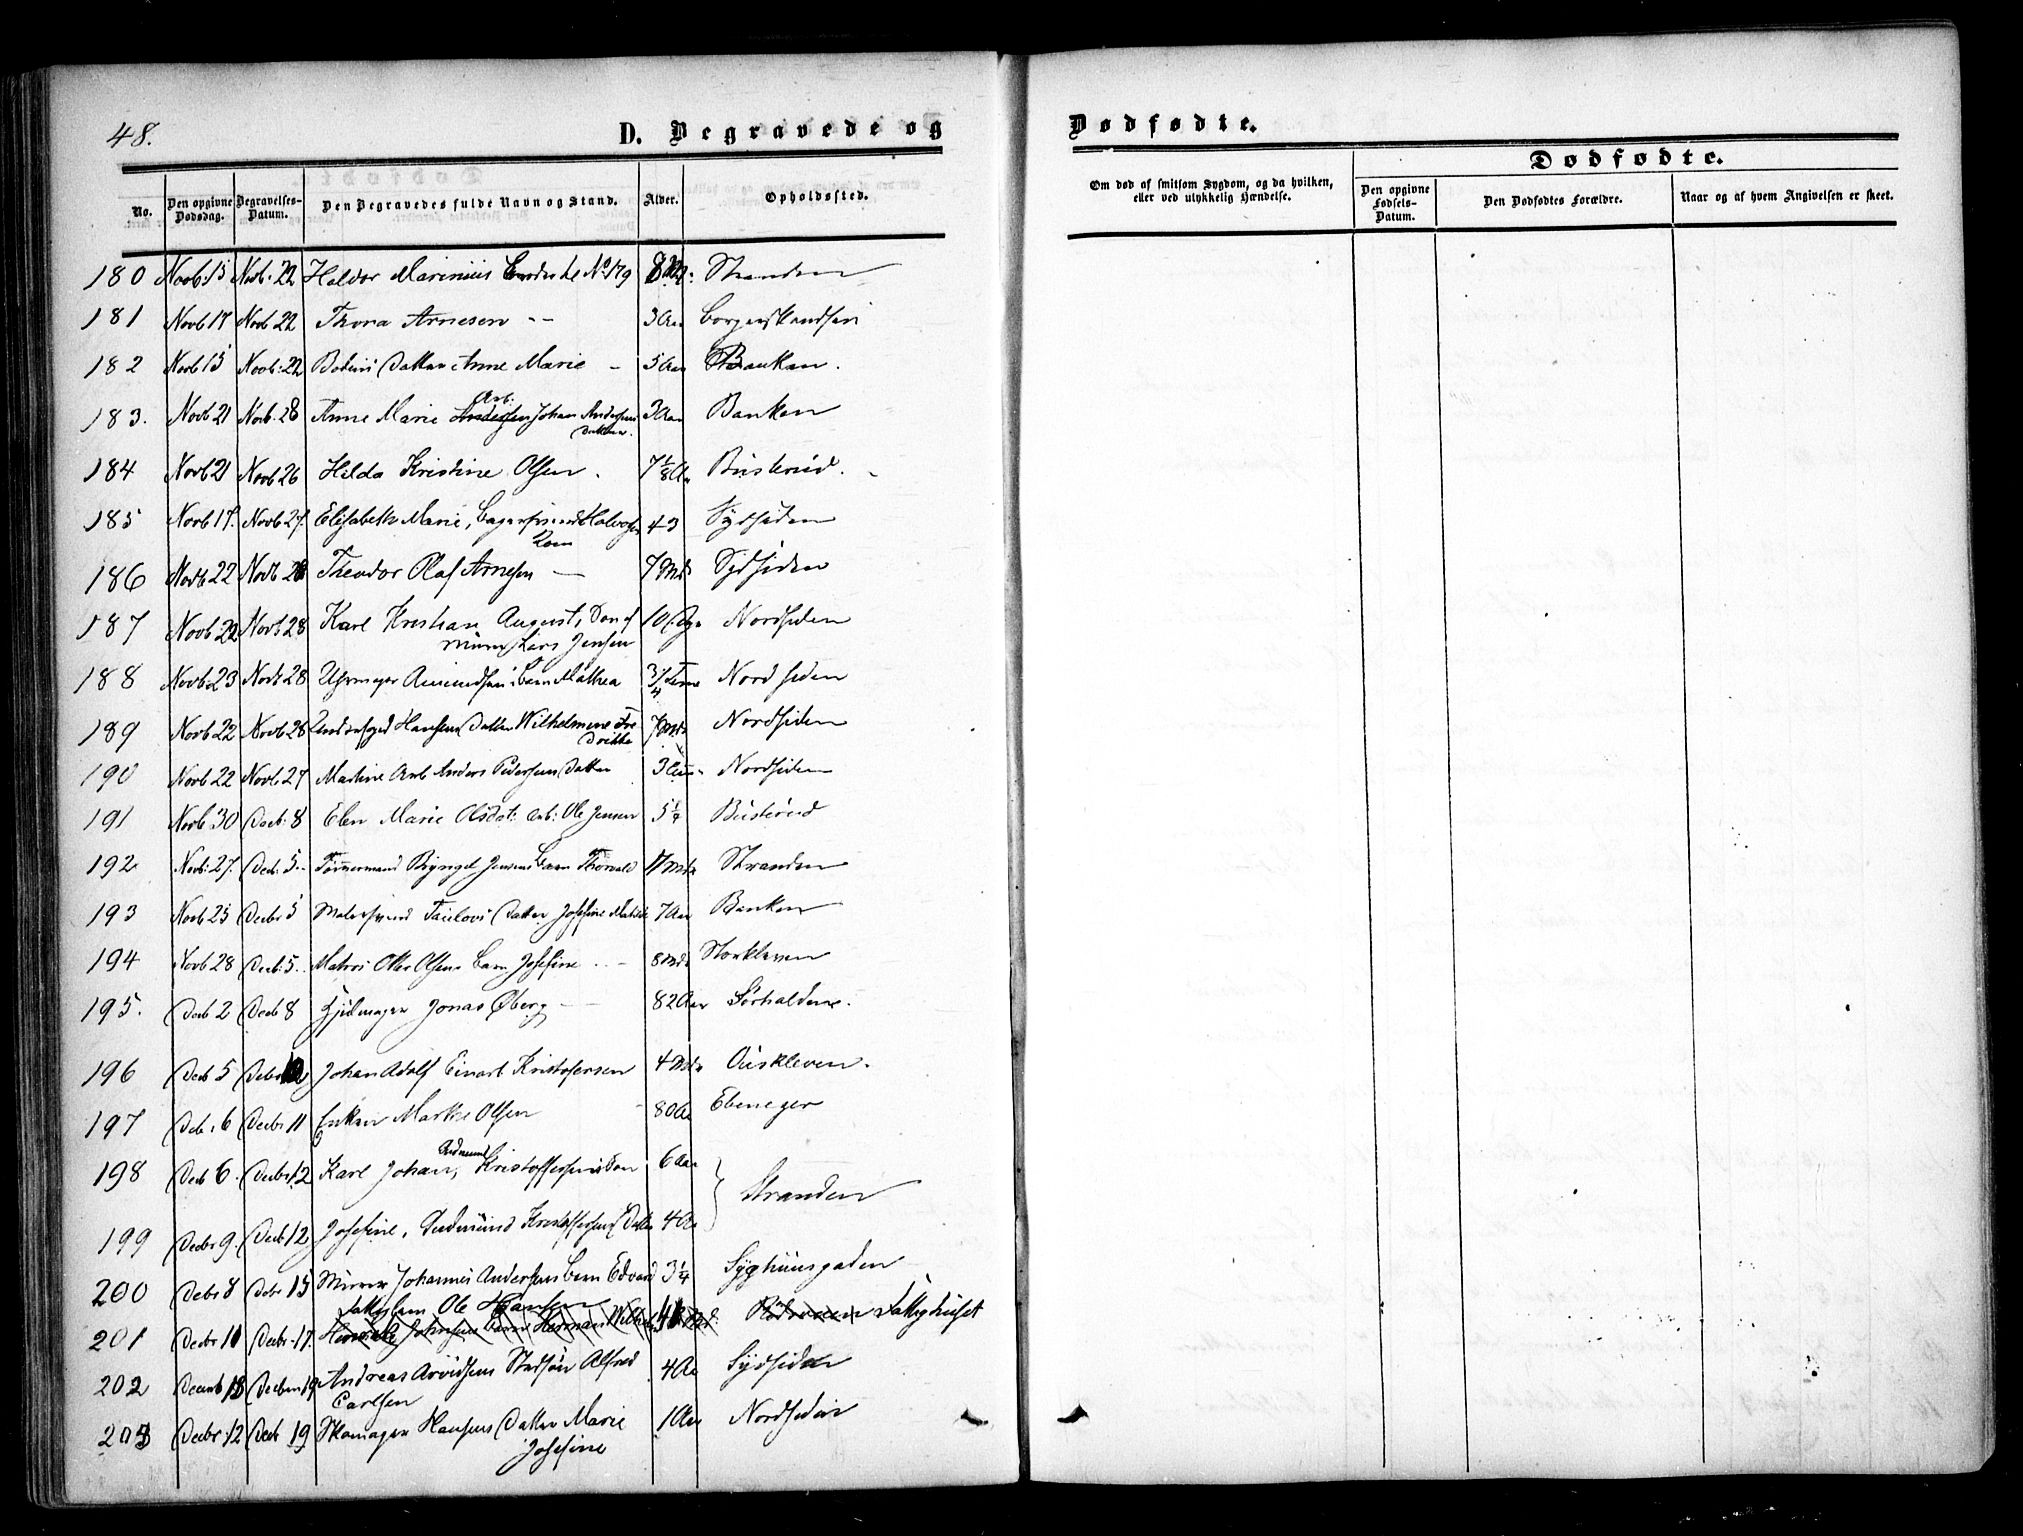 48.
D. Begravede og
Dødfødte.
No.
Den opgivne Dødsdag.
Begravelses-Datum.
Den Begravedes fulde Navn og Stand.
Alder.
Opholdssted.
Om død af smitsom Sygdom, og da hvilken, eller ved ulykkelig Hændelse.
Dødfødte.
Den opgivne Fødsels-Datum.
Den Dødfødtes Forældre.
Naar og af hvem Angivelsen er skeet.
180 Novb 15 Novb. 22 Haldor Marinius No 179 8 Stranden
181 Novb 17 Novb 22 Thora Arnesen 3 Aar
182 Novb 15 Novb. 22 Datter Anne Marie 5 Aar Banken.
183. Novb 21 Novb. 28 Anne Marie Andersen Arb. Johan Andersens Datter. 3 Aar Banken
184 Novb 21 Novb 26 Hilda Kristine Olsen. 7 1/8 A Busterud.
185 Novb 17. Novb 27. Elisabeth Marie, Kone 43 Sydsiden
186 Novb 22 Novb 28 Theodor Olaf Arnesen 7 Md Sydsiden
187 Novb. 22 Novb 28 Karl Kristian August, Søn af
Murer Lars Jensen 10 Nordsiden
188 Novb. 23 Novb 28 Uhrmager Amundsens Barn Mathea 3/4 Time Nordsiden
189 Novb 22 Novb 28 Hansens Datter Wilhelmine Fredrikke 7 Mdr Nordsiden
190 Novb 22 Novb. 27 Martine Arb Anders Pedersens Datter 3 Nordsiden
191 Novb 30 Decb. 8 Elen Marie Olsdat. Arb: Ole Jensen 5 1/4 Busterud
192 Novb. 27. Decb. 5. Tømmermand Jensens Barn Thorvald 11 Mdr Stranden
193 Novb 25 Decbr 5 Malersvend Datter Josefine 7 Aar Banken
194 Novb 28 Decb. 5. Matros Olsens Barn Josefine 8 Mdr
195. Decb 2 Decb 8 Jonas Øberg 82 Aar Sørhalden.
196 Decb 5 Johan Adolf Einart Kristofersen 4 Mdr Ouskleven.
197 Decb. 6 Decbr 11 Enken Marthe Olsen 80 Aar Ebeneger
198 Decb 6. Decbr 12 Karl Johan, Gudmund Kristoffersens Søn 6 Aar
Stranden
199 Decbr 9. Decb. 12 Josefine, Gudmund Kristoffersens Datter 4 Aar
200 Decbr 8 Decbr 15 Murer Johannes Andersens Barn Edvard 3 1/4 Syghuusgaden
Fattiglem Ole Hansen
201 Decbr 11 Decbr. 17. Johnsens Barn Herman Fattighuset
202 Decemb 13 Decbr 19 Andreas Arvidsens Stedsøn Alfred
Carlsen 4 Aar Sydsiden
203 Decbr. 12 Decb 19 Skomager Hansens Datter Marie
Josefine 1 Aar Nordsiden